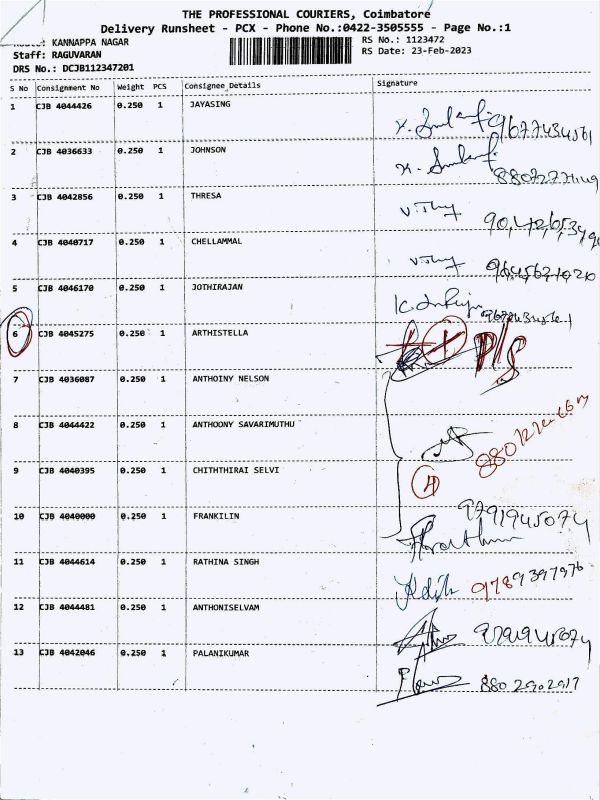 THE PROFESSIONAL COURIERS, Coimbatore
Delivery Runsheet - PCX - Phone No.:0422-3505555 - Page No.:1
KANNAPPA NAGAR RS No.: 1123472
Staff: RAGUVARAN RS Date: 23-Feb-2023
DRS No.: DCJB112347201
S No Consignment No Weight PCS Consignee Details Signature
1 CJB 4044426 0.250 1 JAYASING 9677434561
2 CJB 4036633 0.250 1 JOHNSON
3 CJB 4042856 0.250 1 THRESA
4 CJB 4040717 0.250 1 CHELLAMMAL
5 CJB 4046170 0.250 1 JOTHIRAJAN
6 CJB 4045275 0.250 1 ARTHISTELLA P/S
7 CJB 4036087 0.250 1 ANTHOINY NELSON
8 CJB 4044422 0.250 1 ANTHOONY SAVARIMUTHU
9 CJB 4040395 0.250 1 CHITHTHIRAI SELVI 4
10 CJB 4040000 0.250 1 FRANKILIN 9791945074
11 CJB 4044614 0.250 1 RATHINA SINGH 9789397976
12 CJB 4044481 0.250 1 ANTHONISELVAM 9791945074
13 CJB 4042046 0.250 1 PALANIKUMAR 8802902917